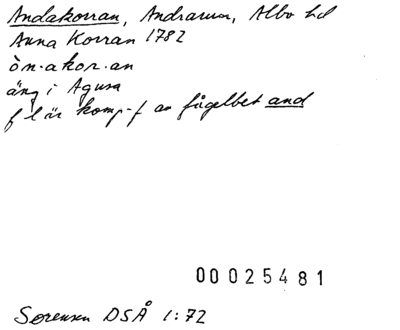 Andakorran, Andrarum, Albo hd
Anna Korran 1782
òn·akor·an
äng i Agusa
f l är komp-f av fågelbet and
00025481
Sørensen DSÅ 1:72